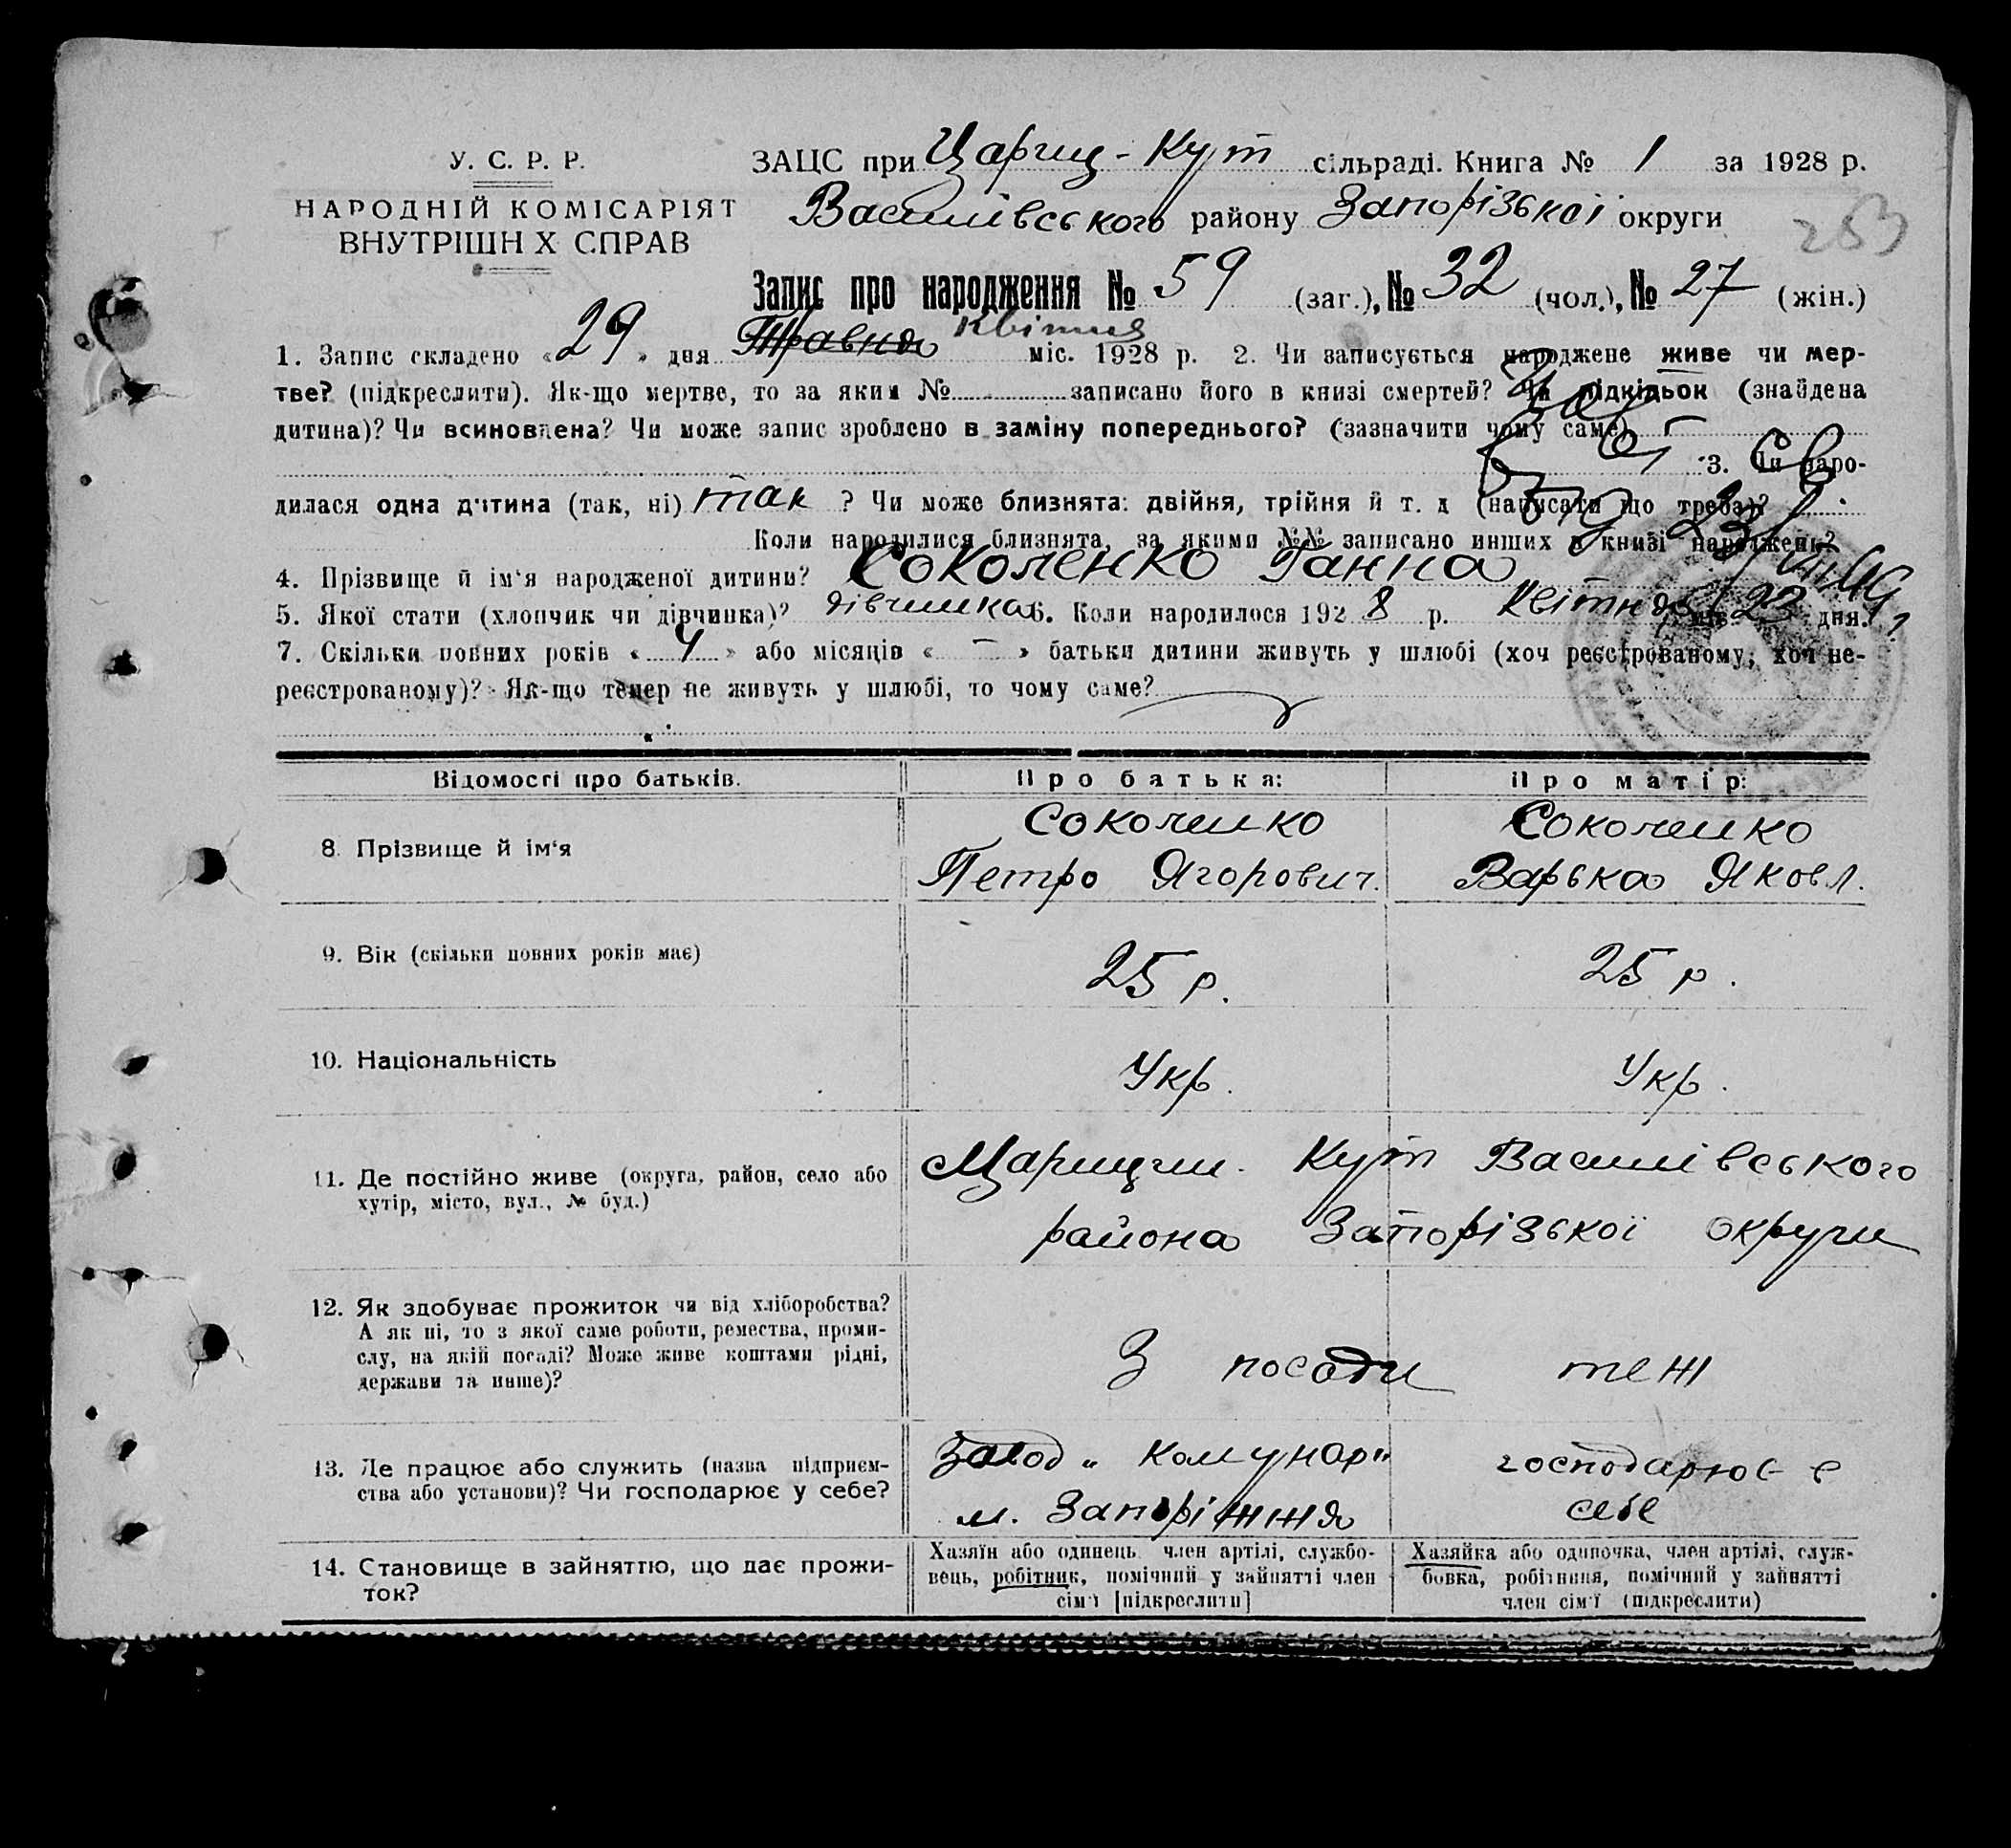 У. С. Р. Р.
НАРОДНІЙ КОМІСАРІЯТ
ВНУТРІШН Х СПРАВ
ЗАЦС при Цариц-Кут сільраді. Книга № 1 за 1928 р.
Василівського району Запорізької округи
253
Запис про народження № 59 (заг.), № 32 (чол.), № 27 (жін.)
1. Запис складено « 29 » дня Травня квітня міс. 1928 р. 2. Чи записується народжене живе чи мер-
тве? (підкреслити). Як-що мертве, то за яким № записано його в книзі смертей? Чи підкідьок (знайдена
дитина)? Чи всиновлена? Чи може запис зроблено в заміну попереднього? (зазначити чому саме)
3. Чи наро-
дилася одна дитина (так, ні) так ? Чи може близнята: двійня, трійня й т. д (написати що треба)?
Коли народилися близнята, за якими №№ записано инших в книзі народжень?
4. Прізвище й ім'я народженої дитини? Соколенко Ганна
5. Якої стати (хлопчик чи дівчинка)? дівчинка 6. Коли народилося 1928 р. Квітня міс. 23 дня.
7. Скільки повних років « 4 » або місяців « — » батьки дитини живуть у шлюбі (хоч реєстрованому, хоч не-
реєстрованому)? Як-що тепер не живуть у шлюбі, то чому саме?
Відомості про батьків. Про батька: Про матір:
8. Прізвище й ім'я Соколенко Петро Ягорович. Соколенко Варька Яковл.
9. Вік (скільки повних років має) 25 р. 25 р.
10. Національність Укр. Укр.
11. Де постійно живе (округа, район, село або
хутір, місто, вул., № буд.)
Царицин. Кут Василівського
района Запорізької округи
12. Як здобуває прожиток чи від хліборобства?
А як ні, то з якої саме роботи, ремества, проми-
слу, на якій посаді? Може живе коштами рідні,
держави та инше)?
З посади теж
13. Де працює або служить (назва підприєм-
ства або установи)? Чи господарює у себе?
Завод „Комунар"
м. Запоріжжя
господарює в
себе
14. Становище в зайняттю, що дає прожи-
ток?
Хазяїн або одинець член артілі, службо-
вець, робітник, помічний у зайнятті член
сім'ї [підкреслити]
Хазяйка або одиночка, член артілі, служ-
бовка, робітниця, помічний у зайнятті
член сім'ї (підкреслити)